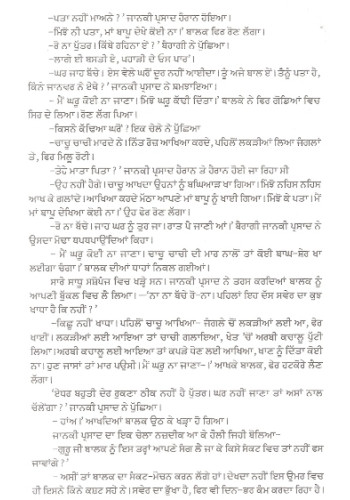 -ਪਤਾ ਨਹੀਂ ਮਾਅਨੇ ? ' ਜਾਨਕੀ ਪ੍ਰਸਾਦ ਹੈਰਾਨ ਹੋਇਆ ।
-ਮਿੰਝੋ ਨੀ ਪਤਾ, ਮਾਂ ਬਾਪੂ ਦੇਖੇ ਕੋਈ ਨਾ।' ਬਾਲਕ ਫਿਰ ਰੋਣ ਲੱਗਾ ।
-ਰੋ ਨਾ ਪੁੱਤਰ। ਕਿੱਥੇ ਰਹਿਨਾ ਏਂ ?' ਬੈਰਾਗੀ ਨੇ ਪੁੱਛਿਆ।
-ਲਾਗੇ ਈ ਬਸਤੀ ਏ, ਪਹਾੜੀ ਦੇ ਓਸ ਪਾਰ'।
-ਘਰ ਜਾਹ ਬੱਚੇ। ਏਸ ਵੇਲੇ ਘਰੋਂ ਦੂਰ ਨਹੀਂ ਆਈਦਾ। ਤੂੰ ਅਜੇ ਬਾਲ ਏਂ। ਤੈਨੂੰ ਪਤਾ ਹੈ,
ਕਿੰਨੇ ਜਾਨਵਰ ਨੇ ਏਥੇ ?' ਜਾਨਕੀ ਪ੍ਰਸਾਦ ਨੇ ਸਮਝਾਇਆ।
- ਮੈਂ ਘਰੂ ਕੋਈ ਨਾ ਜਾਣਾ। ਮਿੰਝੋ ਘਰੂ ਕੱਢੀ ਦਿੱਤਾ।' ਬਾਲਕੇ ਨੇ ਫਿਰ ਗੋਡਿਆਂ ਵਿਚ
ਸਿਰ ਦੇ ਲਿਆ। ਰੋਣ ਲੱਗ ਪਿਆ।
-ਕਿਸਨੇ ਕੱਢਿਆ ਘਰੋਂ ? ਇਕ ਚੇਲੇ ਨੇ ਪੁੱਛਿਆ
-ਚਾਚੂ ਚਾਚੀ ਮਾਰਦੇ ਨੇ। ਨਿੱਤ ਰੋਜ਼ ਆਖਿਆ ਕਰਦੇ, ਪਹਿਲੋਂ ਲਕੜੀਆਂ ਲਿਆ ਜੰਗਲਾਂ
ਤੇ, ਫਿਰ ਮਿਲੂ ਰੋਟੀ।
-ਤੇਰੇ ਮਾਤਾ ਪਿਤਾ ?' ਜਾਨਕੀ ਪ੍ਰਸਾਦ ਹੈਰਾਨ ਤੇ ਹੈਰਾਨ ਹੋਈ ਜਾ ਰਿਹਾ ਸੀ
-ਉਹ ਨਹੀਂ ਹੈਗੇ। ਚਾਚੂ ਆਖਦਾ ਉਹਨਾਂ ਨੂੰ ਬਘਿਆੜ ਖਾ ਗਿਆ। ਮਿੰਝੋ ਨਹਿਸ ਨਹਿਸ
ਆਖ ਕੇ ਗਲਾਂਦੇ। ਆਖਿਆ ਕਰਦੇ ਮੋਠਾ ਆਪਣੇ ਮਾਂ ਬਾਪੂ ਨੂੰ ਖਾਈ ਗਿਆ। ਮਿੰਝੋ ਕੇ ਪਤਾ। ਮੈਂ
ਮਾਂ ਬਾਪੂ ਦੇਖਿਆ ਕੋਈ ਨਾ।' ਉਹ ਫੇਰ ਰੋਣ ਲੱਗਾ।
-ਰੋ ਨਾ ਬੱਚੇ। ਜਾਹ ਘਰ ਨੂੰ ਤੁਰ ਜਾਹ। ਰਾਤ ਪੈ ਜਾਣੀ ਆਂ।' ਬੈਰਾਗੀ ਜਾਨਕੀ ਪ੍ਰਸਾਦ ਨੇ
ਉਸਦਾ ਮੋਢਾ ਥਪਥਪਾਉਂਦਿਆਂ ਕਿਹਾ।
- ਮੈਂ ਘਰੂ ਕੋਈ ਨਾ ਜਾਣਾ। ਚਾਚੂ ਚਾਚੀ ਦੀ ਮਾਰ ਨਾਲੋਂ ਤਾਂ ਕੋਈ ਬਾਘ-ਸ਼ੇਰ ਖਾ
ਲਈਗਾ ਚੰਗਾ।' ਬਾਲਕ ਦੀਆਂ ਧਾਹਾਂ ਨਿਕਲ ਗਈਆਂ।
ਸਾਰੇ ਸਾਧੂ ਸਸ਼ੋਪੰਜ ਵਿਚ ਖੜੇ ਸਨ। ਜਾਨਕੀ ਪ੍ਰਸਾਦ ਨੇ ਤਰਸ ਕਰਦਿਆਂ ਬਾਲਕ ਨੂੰ
ਆਪਣੀ ਬੁੱਕਲ ਵਿਚ ਲੈ ਲਿਆ। -'ਨਾ ਨਾ ਬੱਚੇ ਰੋ-ਨਾ। ਪਹਿਲਾਂ ਇਹ ਦੱਸ ਸਵੇਰ ਦਾ ਕੁਝ
ਖਾਧਾ ਹੈ ਕਿ ਨਹੀਂ ?'
-ਕਿਛੂ ਨਹੀਂ ਖਾਂਧਾ। ਪਹਿਲੋਂ ਚਾਚੂ ਆਖਿਆ- ਜੰਗਲੇ ਚੋਂ ਲਕੜੀਆਂ ਲਈ ਆ, ਫੇਰ
ਖਾਈਂ। ਲਕੜੀਆਂ ਲਈ ਆਇਆ ਤਾਂ ਚਾਚੀ ਗਲਾਇਆ, ਖੇਤ 'ਚੋਂ ਅਰਬੀ ਕਚਾਲੂ ਪੁੱਟੀ
ਲਿਆ। ਅਰਬੀ ਕਚਾਲੂ ਲਈ ਆਇਆ ਤਾਂ ਕਪੜੇ ਧੋਣ ਲਈ ਆਖਿਆ, ਖਾਣ ਨੂੰ ਦਿੱਤਾ ਕੋਈ
ਨਾ। ਹੁਣ ਜਾਸਾਂ ਤਾਂ ਮਾਰ ਪਉਸੀ। ਮੈਂ ਘਰੂ ਨਾ ਜਾਣਾ-।' ਆਖਕੇ ਬਾਲਕ, ਫੇਰ ਹਟਕੋਰੇ ਲੈਣ
ਲੱਗਾ।
'ਏਧਰ ਬਹੁਤੀ ਦੇਰ ਰੁਕਣਾ ਠੀਕ ਨਹੀਂ ਹੈ ਪੁੱਤਰ। ਘਰ ਨਹੀਂ ਜਾਣਾ ਤਾਂ ਅਸਾਂ ਨਾਲ
ਚੱਲੇਂਗਾ ?' ਜਾਨਕੀ ਪ੍ਰਸਾਦ ਨੇ ਪੁੱਛਿਆ।
- ਹਾਂਅ।' ਆਖਦਿਆਂ ਬਾਲਕ ਉਠ ਕੇ ਖੜ੍ਹਾ ਹੋ ਗਿਆ।
ਜਾਨਕੀ ਪ੍ਰਸਾਦ ਦਾ ਇਕ ਚੇਲਾ ਨਜ਼ਦੀਕ ਆ ਕੇ ਹੌਲੀ ਜਿਹੀ ਬੋਲਿਆ-
-ਗੁਰੂ ਜੀ ਬਾਲਕ ਨੂੰ ਇਸ ਤਰ੍ਹਾਂ ਆਪਣੇ ਸੰਗ ਲੈ ਜਾ ਕੇ ਕਿਸੇ ਸੰਕਟ ਵਿਚ ਤਾਂ ਨਹੀਂ ਫਸ
ਜਾਵਾਂਗੇ ?'
- ਅਸੀਂ ਤਾਂ ਬਾਲਕ ਦਾ ਸੰਕਟ-ਮੋਚਨ ਕਰਨ ਲੱਗੇ ਹਾਂ। ਦੇਖਦਾ ਨਹੀਂ ਇਸ ਉਮਰ ਵਿਚ
ਹੀ ਇਸਨੇ ਕਿੰਨੇ ਕਸ਼ਟ ਸਹੇ ਨੇ। ਸਵੇਰ ਦਾ ਭੁੱਖਾ ਹੈ, ਫਿਰ ਵੀ ਦਿਨ-ਭਰ ਕੰਮ ਕਰਦਾ ਰਿਹਾ ਹੈ।